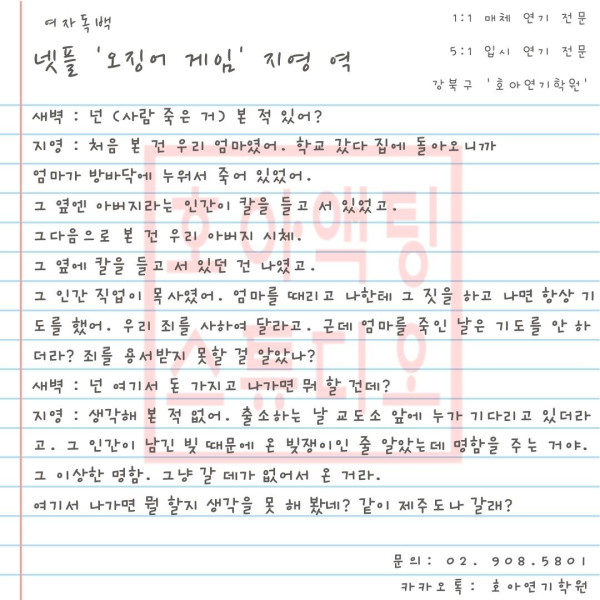 여자독백
넷플 '오징어 게임' 지영 역
1:1 매체 연기 전문
5:1 입시 연기 전문
강북구 '호아연기학원'
새벽 : 넌 (사람 죽은 거) 본 적 있어?
지영 : 처음 본 건 우리 엄마였어. 학교 갔다 집에 돌아오니까
엄마가 방바닥에 누워서 죽어 있었어.
그 옆엔 아버지라는 인간이 칼을 들고 서 있었고.
그다음으로 본 건 우리 아버지 시체.
그 옆에 칼을 들고 서 있던 건 나였고.
그 인간 직업이 목사였어. 엄마를 때리고 나한테 그 짓을 하고 나면 항상 기
도를 했어. 우리 죄를 사하여 달라고. 근데 엄마를 죽인 날은 기도를 안 하
더라? 죄를 용서받지 못할 걸 알았나?
새벽 : 넌 여기서 돈 가지고 나가면 뭐 할 건데?
지영 : 생각해 본 적 없어. 출소하는 날 교도소 앞에 누가 기다리고 있더라
고. 그 인간이 남긴 빚 때문에 온 빚쟁이인 줄 알았는데 명함을 주는 거야.
그 이상한 명함. 그냥 갈 데가 없어서 온 거라.
여기서 나가면 뭘 할지 생각을 못 해 봤네? 같이 제주도나 갈래?
호아액팅
스튜디오
문의: 02. 908.5801
카카오톡: 호아연기학원